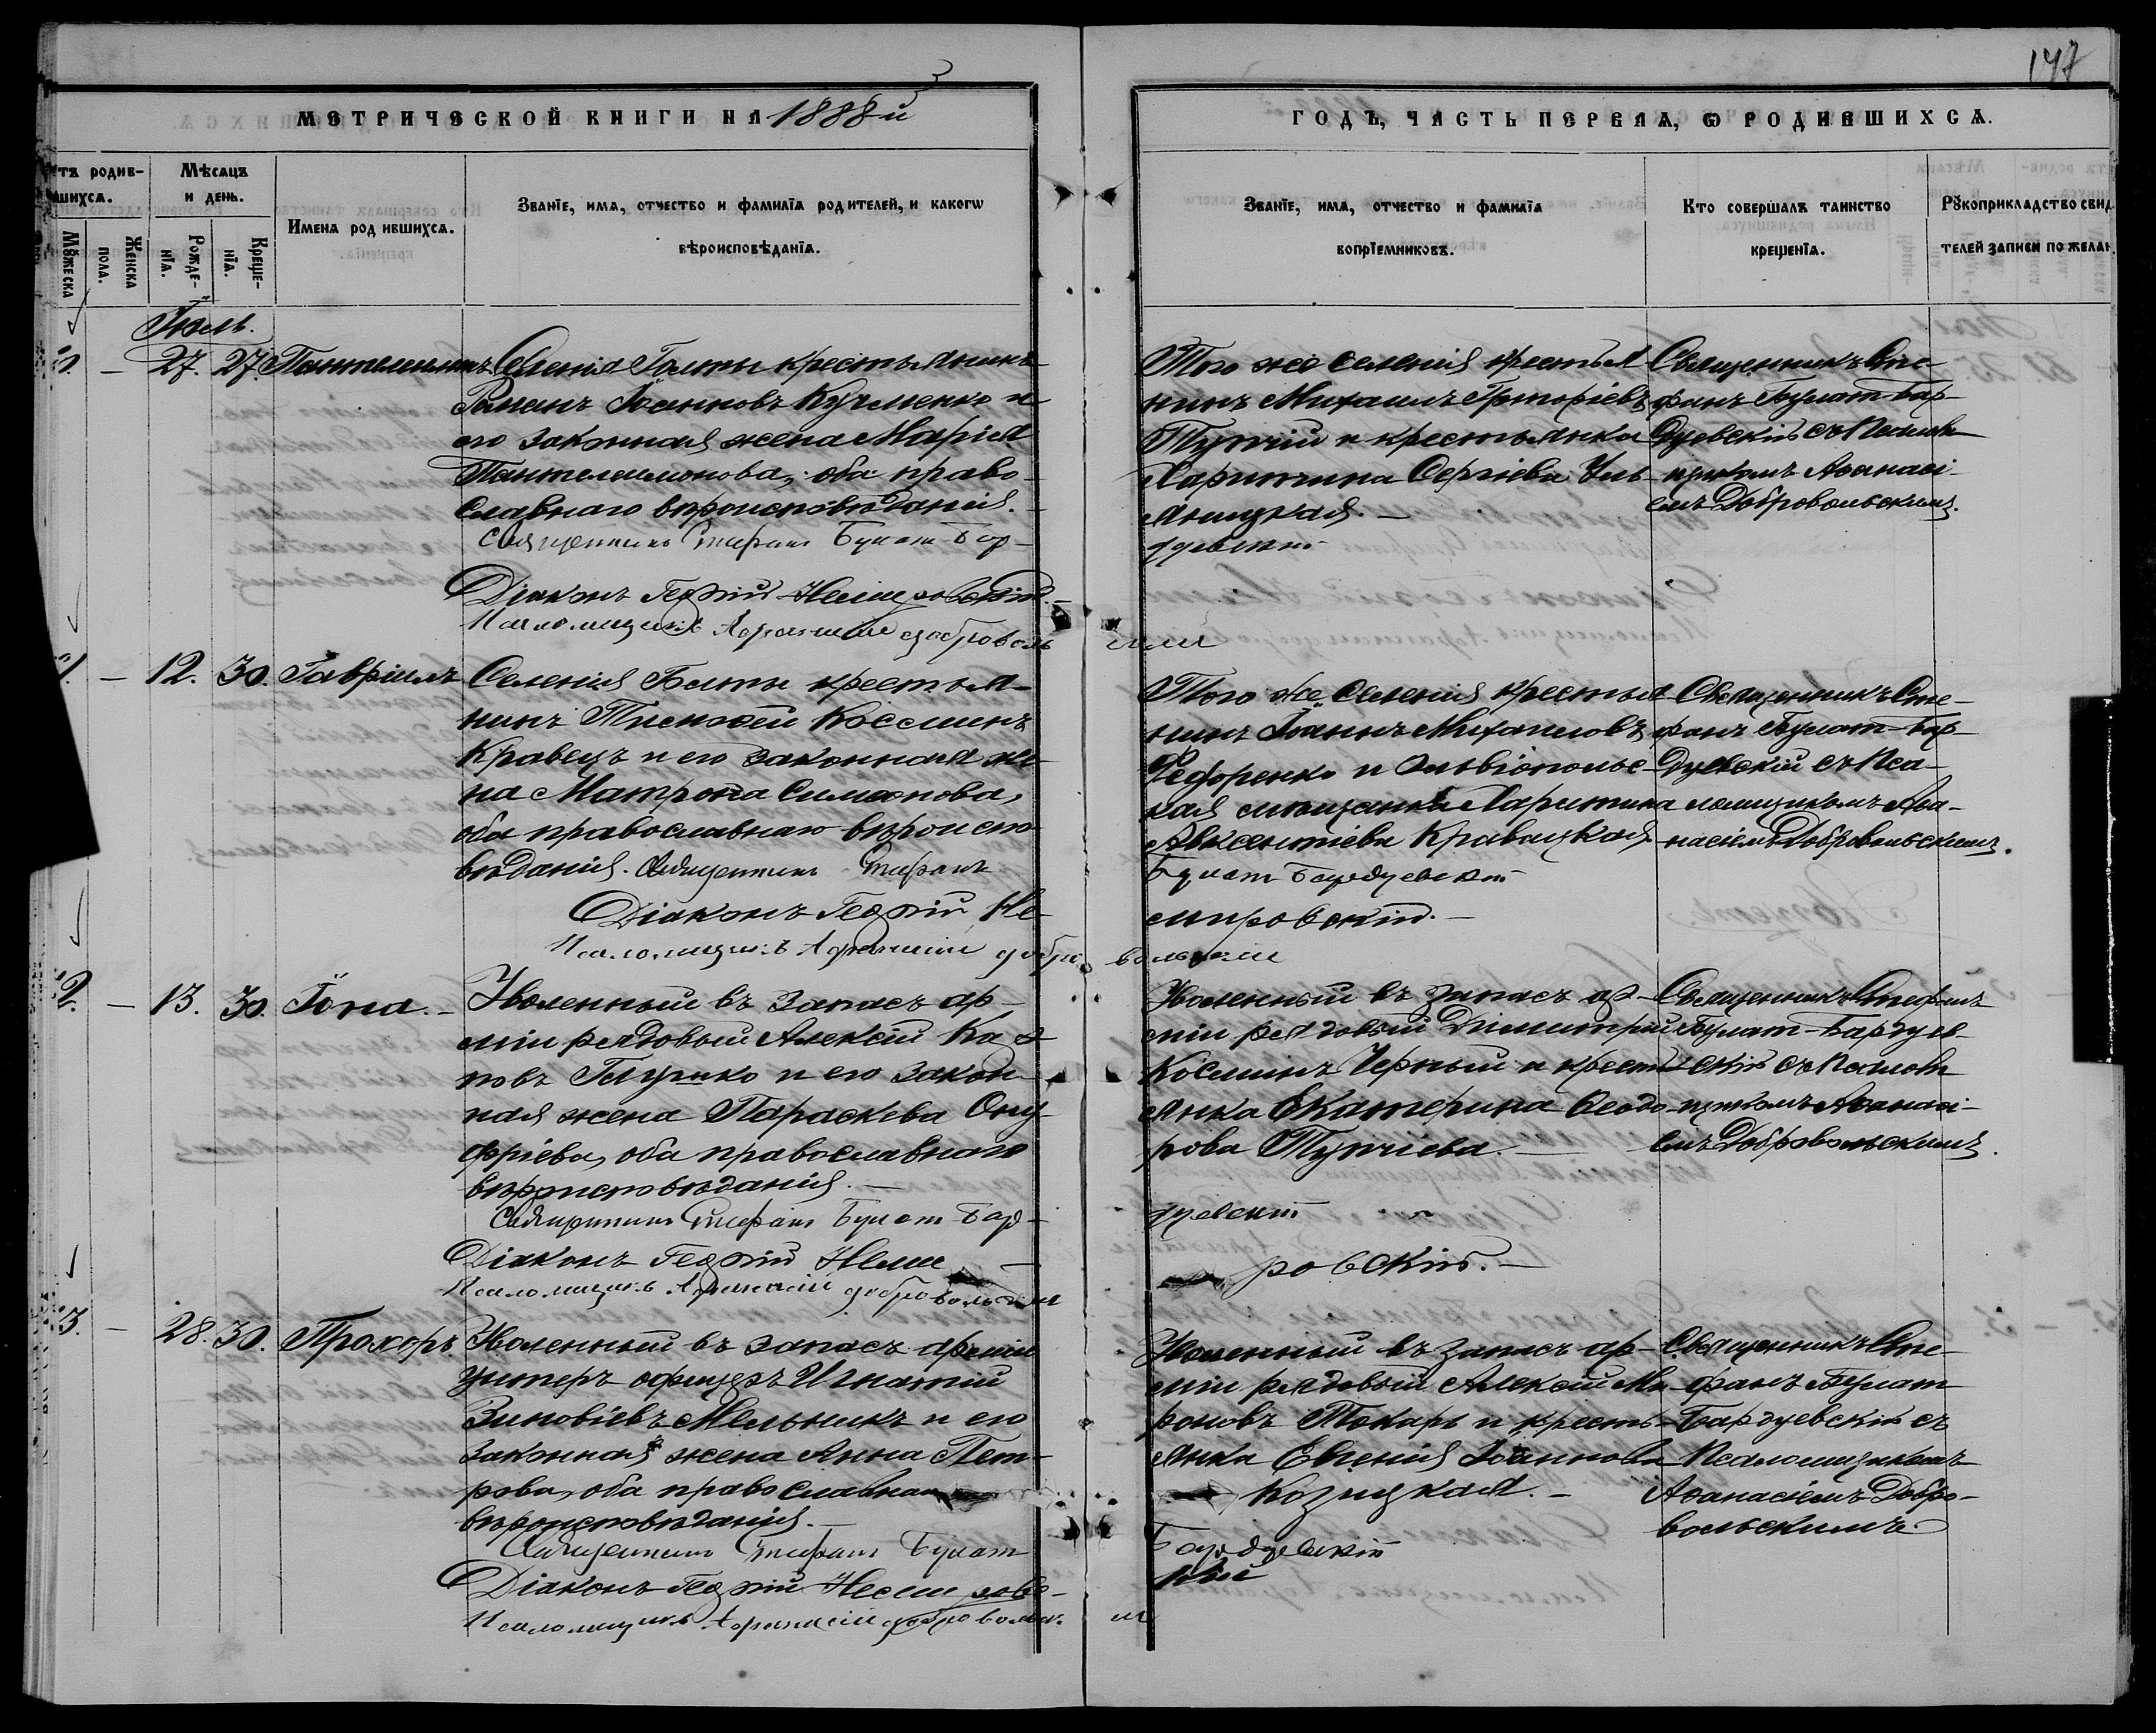 147
МЕТРИЧЕСКОЙ КНИГИ НА 1888й
ГОДЪ, ЧАСТЬ ПЕРВАЯ, Ѡ РОДИВШИХСѦ.
тъ родив-
шихсѧ.
Мѣсѧцъ
и день.
Мꙋжеска
Женска
пола.
Рожде-
нїѧ.
Креще-
нїѧ.
Имена родившихсѧ.
Званїе, имѧ, отчество и фамилїѧ родителей, и какогѡ
вѣроисповѣданїѧ.
Званїе, имѧ, отчество и фамилїѧ
воспрїемниковъ.
Кто совершалъ таинство
крещенїѧ.
Рꙋкоприкладство свид
телей записи по желан
Іюль.
27. 27. Пантелеимонъ
Селенія Голты крестьянинъ
Романъ Іоанновъ Кучменко и
его законная жена Марія
Пантелеимонова, оба право-
славнаго вѣроисповѣданія.
Священникъ Стефанъ Булат-Бар-
Діаконъ Георгій Немировскій.
Псаломщикъ Афанасій Доброволь
Того же селенія крестья-
нинъ Михаилъ Григоріевъ
Тупчій и крестьянка
Харитина Сергіева Уль-
яницкая.
дуевскій
скій
Священникъ Сте-
фанъ Булат-Бар-
дуевскій съ Псалом-
щикомъ Аѳанасі-
емъ Добровольскимъ.
12. 30. Гавріилъ
Селенія Голты крестья-
нинъ Тимоѳей Космин
Кравецъ и его законная же-
на Матрона Симеонова,
оба православнаго вѣроиспо-
вѣданія. Священникъ Стефанъ
Діаконъ Георгій Не-
Псаломщикъ Афанасій Добро
Того же селенія крестья-
нинъ Іоаннъ Михаиловъ
Федоренко и Ольвіопольс-
кая мѣщанка Харитина
Авксентіева Кравецкая
Булат Бардуевскій
мировскій.
вольскій
Священникъ Сте-
фанъ Булат-Бар-
дуевскій съ Пса-
ломщикомъ Аѳа-
насіемъ Добровольскимъ.
2. 13. 30. Іона.
Уволенный въ запасъ ар-
міи рядовый Алексій Кар-
повъ и его закон-
ная жена Параскева Ону-
фріева, оба православнаго
вѣроисповѣданія.
Священникъ Стефанъ Булат-Бар-
Діаконъ Георгій Неми
Псаломщикъ Афанасій Добровольскій
Уволенный въ запасъ ар-
міи рядовый Димитрій
Косминъ Черный и кресть-
янка Екатерина Ѳеодо-
рова Тупчіева.
дуевскій
ровскій.
Священникъ Стефанъ
Булат-Бардуев-
скій съ Псалом-
щикомъ Аѳанасі-
емъ Добровольскимъ.
3. 28. 30. Прохоръ.
Уволенный въ запасъ арміи
унтеръ офицеръ Игнатій
Зиновіевъ Мельникъ и его
законная жена Анна Пет-
рова, оба православнаго
вѣроисповѣданія.
Священникъ Стефанъ Булат
Діаконъ Георгій Немировс-
Псаломщикъ Афанасій Добровольск.
Уволенный въ запасъ ар-
міи рядовый Алексій Ми-
роновъ Токарь и кресть-
янка Евгенія Іоаннова
Козицкая.
Бардуевскій
кій
ій
Священникъ Сте-
фанъ Булат
Бардуевскій съ
Псаломщикомъ
Аѳанасіемъ Добро-
вольскимъ.